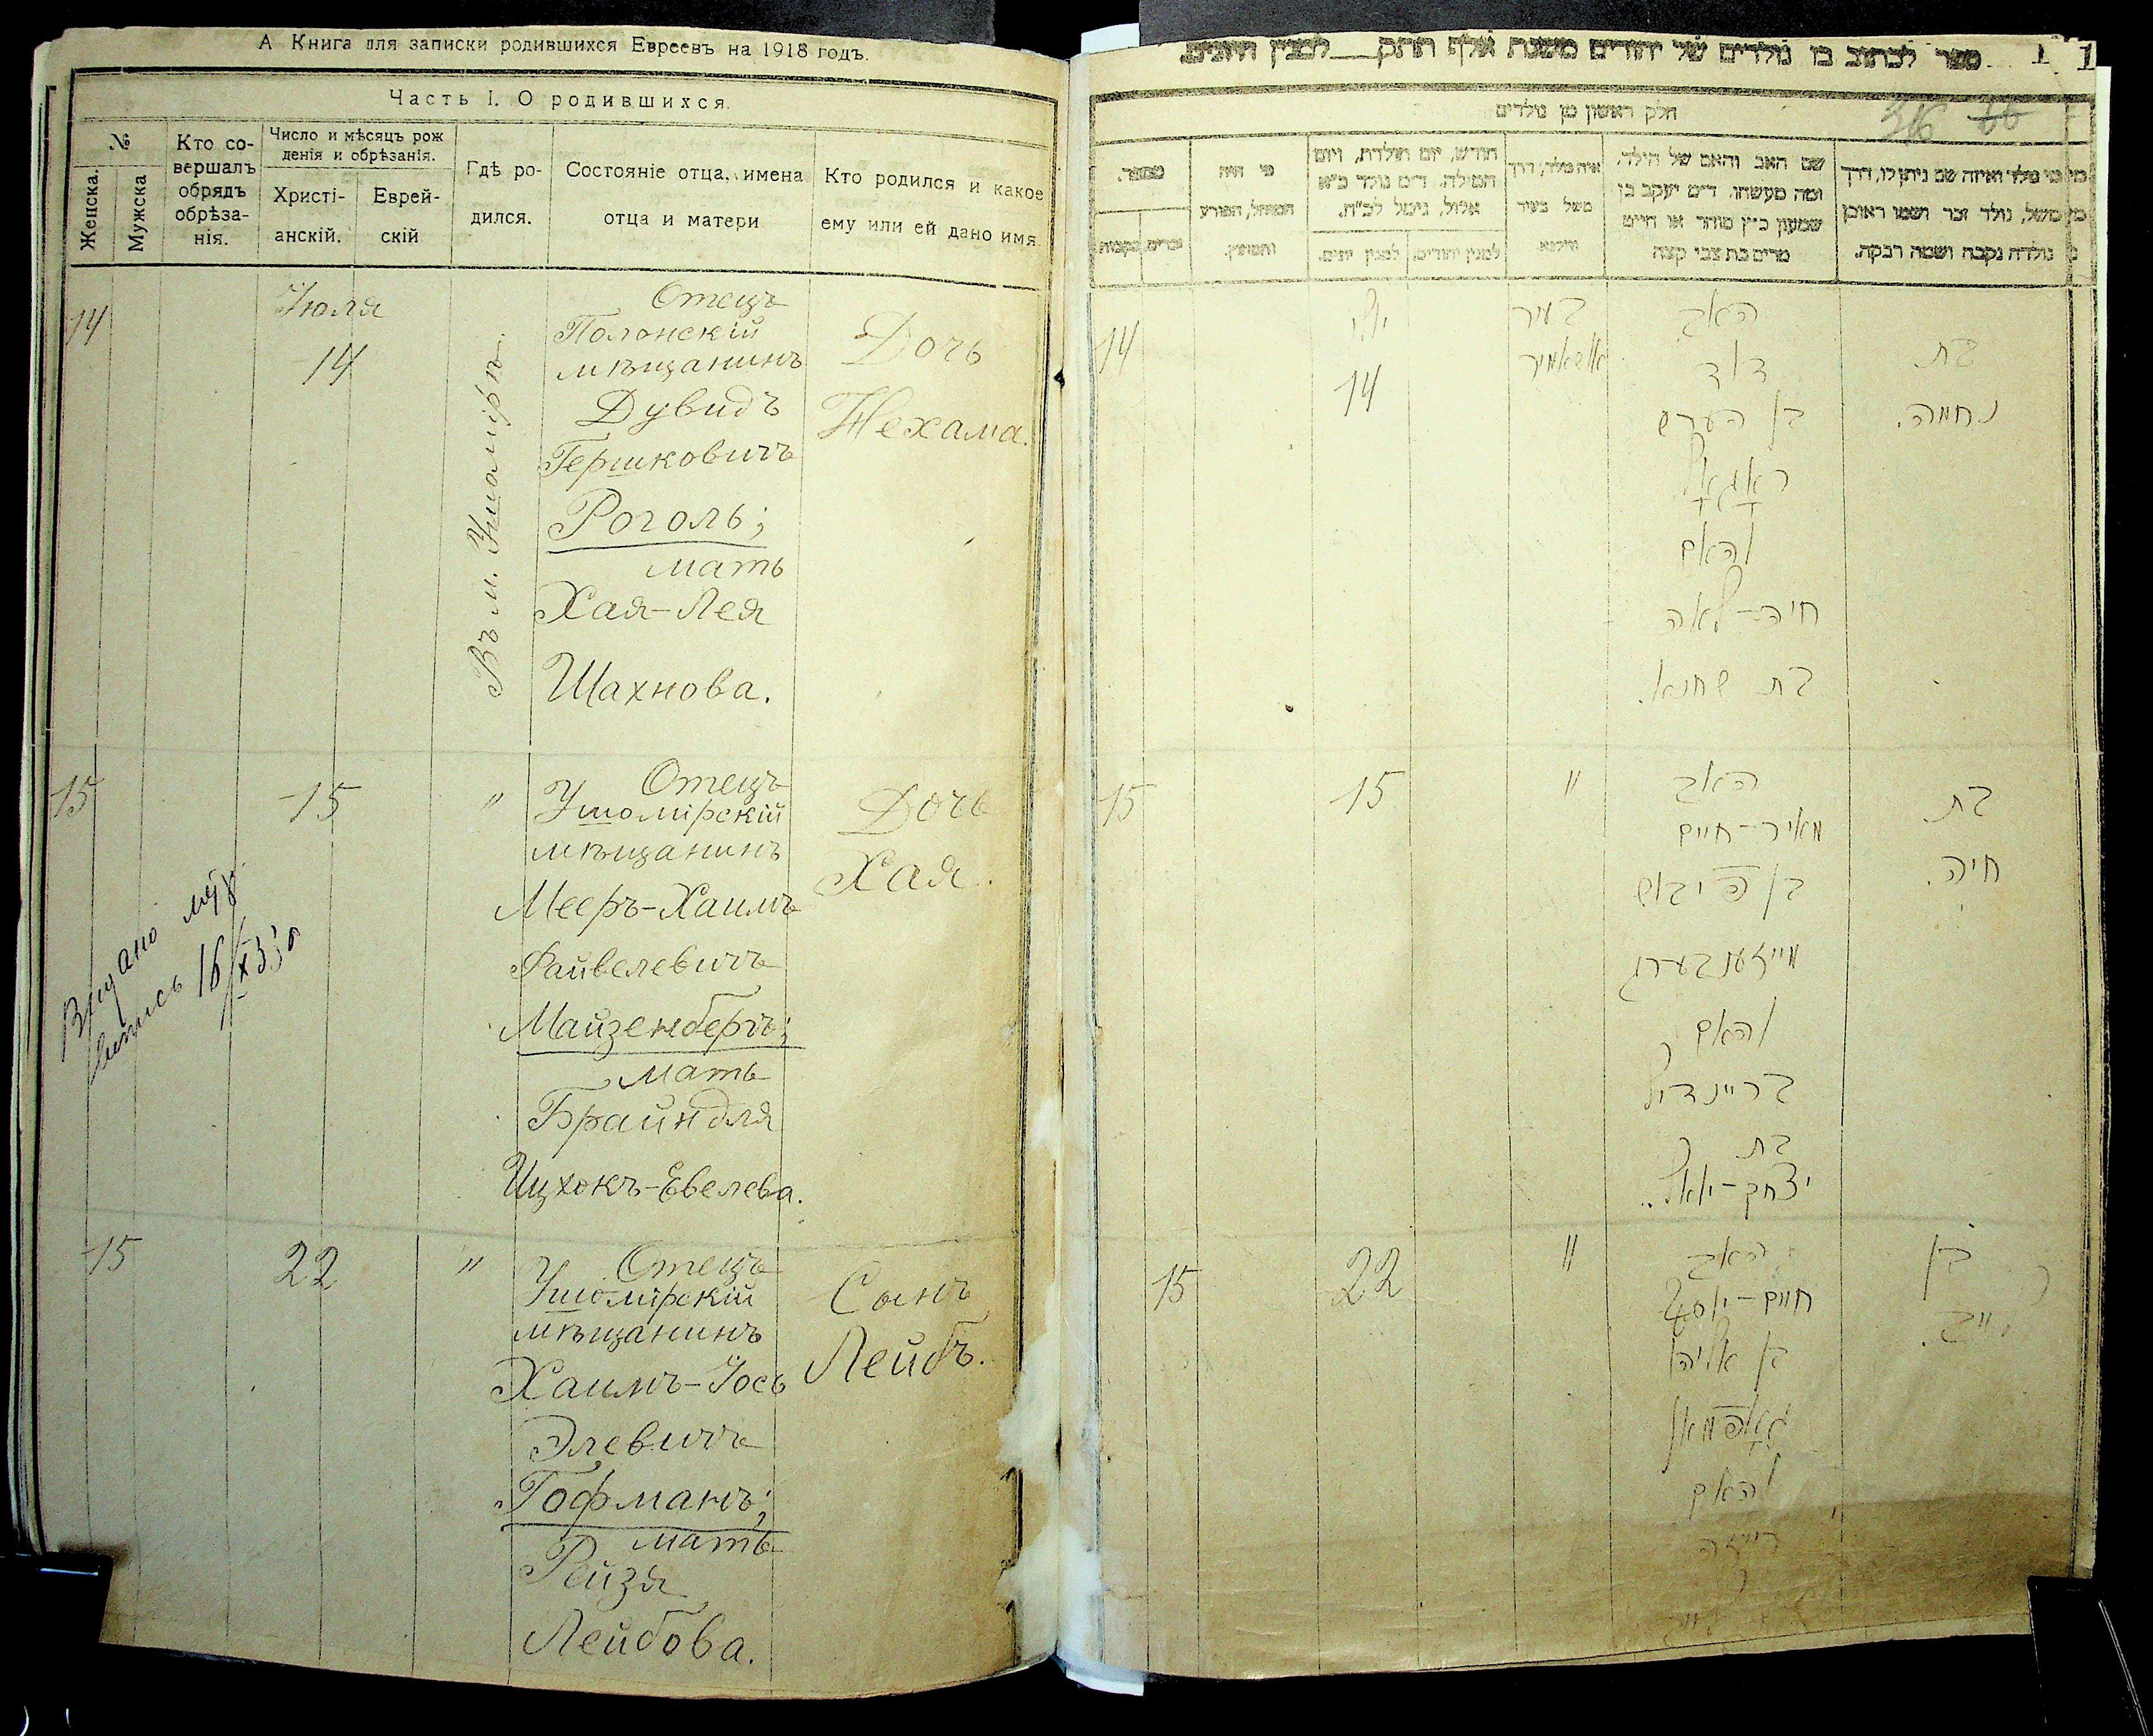 А Книга для записки родившихся Евреевъ на 1918 годъ.
Часть I. О родившихся.
№
Женска.
Мужска
Кто со-
вершалъ
обрядъ
обрѣза-
нія.
Число и мѣсяцъ рож
денія и обрѣзанія.
Христі-
анскій.
Еврей-
скій
Гдѣ ро-
дился.
Состояніе отца, имена
отца и матери
Кто родился и какое
ему или ей дано имя.
14
Іюля
14
Въ м. Ушомірѣ.
Отецъ
Полонскій
мѣщанинъ
Дувидъ
Гершковичъ
Роголь;
мать
Хая-Лея
Шахнова.
Дочь
Нехама.
15
15
"
Отецъ
Ушомірскій
мѣщанинъ
Мееръ-Хаимъ
Файвелевичъ
Майзенбергъ;
мать
Брайндля
Ицхокъ-Евелева.
Дочь
Хая.
Выдано
16/X 33
15
22
"
Отецъ
Ушомірскій
мѣщанинъ
Хаимъ-Іось
Элевичъ
Гофманъ;
мать
Рейзя
Лейбова.
Сынъ
Лейбъ.
ספר לכתוב בו נולדים של יהודים משנת אלף תתק לבנין היונים
חלק ראשון מן נולדים
36
מספר.
זכרים
נקבות
מי היה
המוהל, הפורע
והמוצץ.
חודש, יום הולדת, ויום
המילה. ד״מ נולד כ״א
אלול, נימול לכ״ח.
למנין יהודים.
למנין יונים.
איה נולד, דרך
משל בעיר
ווילנא
שם האב והאם של הילד.
ומה מעשהו. ד״מ יעקב בן
שמעון כ״ץ סוחר או חייט
מרים בת צבי קצה
מי נולד ואיזה שם ניתן לו, דרך
משל, נולד זכר ושמו ראובן
נולדה נקבה ושמה רבקה.
14
יולי
14
בעיר
אושאמיר
האב
דוד
בן הערש
ראגאל
והאם
חיה-לאה
בת שחנא.
בת
נחמה.
15
15
"
האב
מאיר-חיים
בן פייבוש
מייזענבערג
והאם
בריינדיל
בת
יצחק-יואל.
בת
חיה.
15
22
"
האב
חיים-יוסף
בן אליהו
גאפמאן
והאם
רייזה
בן
לייב.